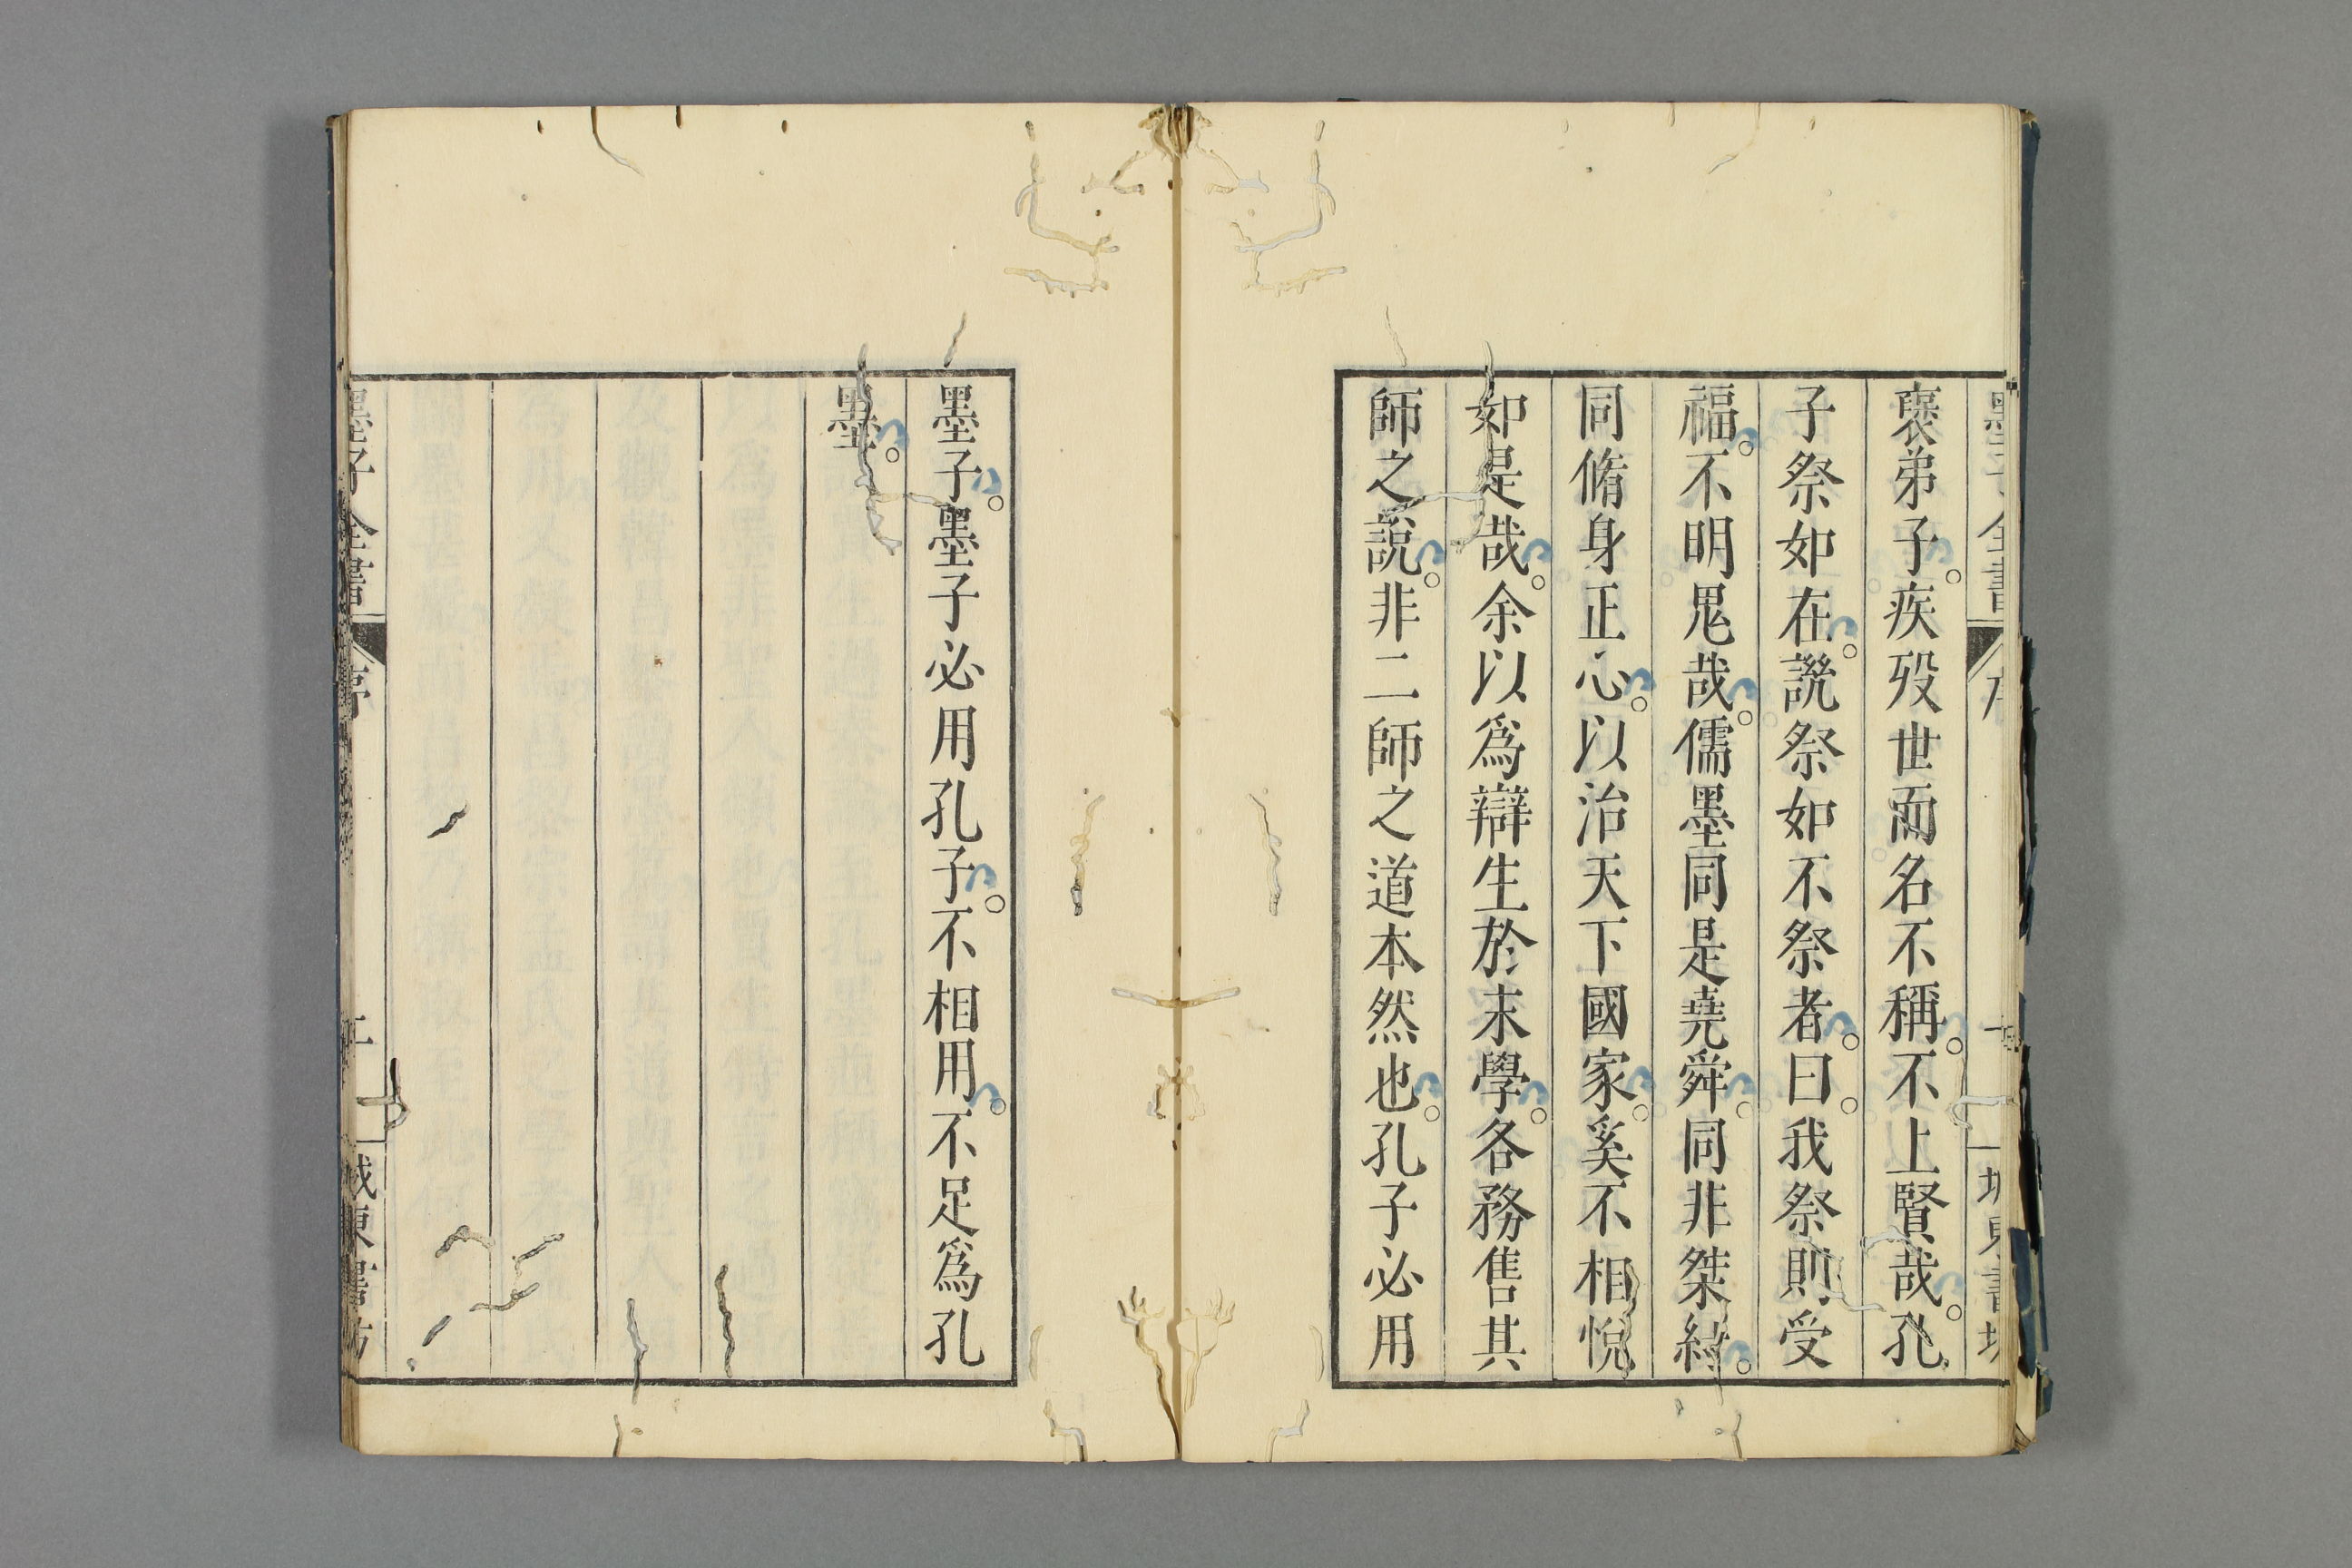 墨子全書
序
褒弟子。疾歿世而名不稱。不上賢哉。孔
子祭如在。譏祭如不祭者。曰。我祭則受
福。不明鬼哉。儒墨同是堯舜。同非桀紂。
同脩身正心。以治天下國家。奚不相悅
如是哉。余以為辯生於末學。各務售其
師之說。非二師之道本然也。孔子必用
墨子。墨子必用孔子。不相用。不足為孔
墨。
墨子全書
序
城東書坊